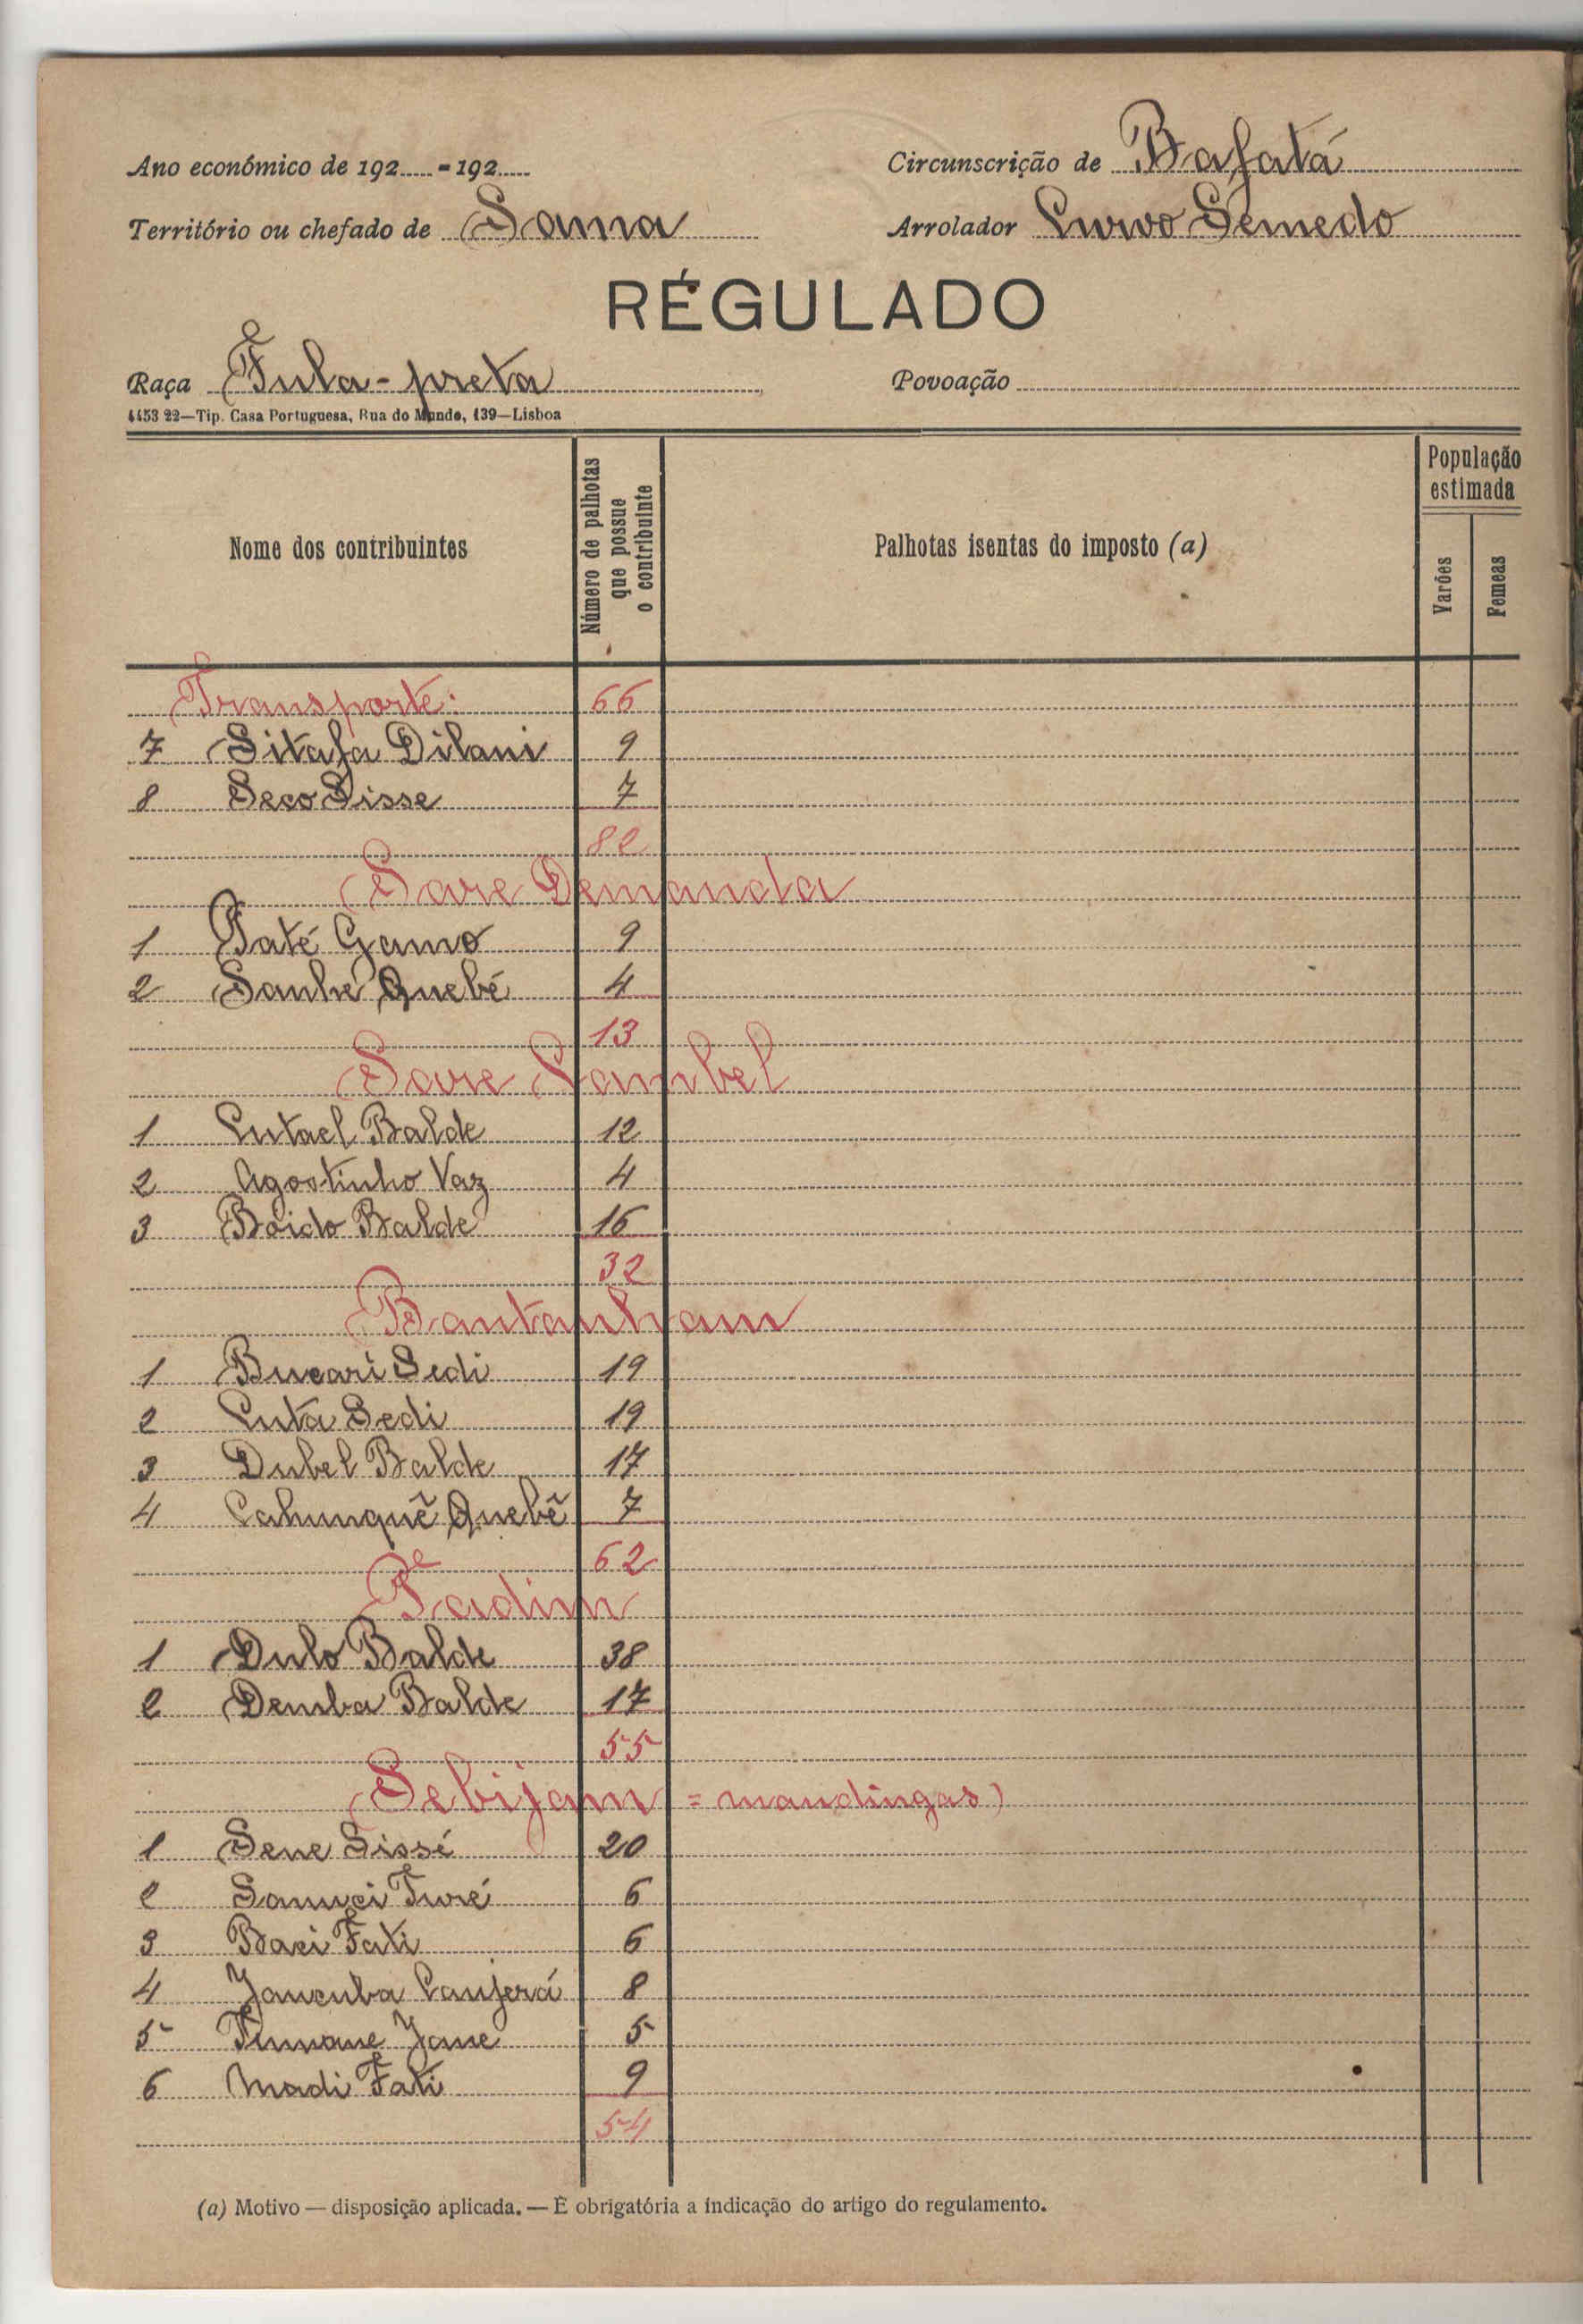 Ano económico de 192.....-192..... Circunscrição de Bafatá
Território ou chefado de Sama Arrolador Curvo Semedo
RÉGULADO
Raça Fula-preta Povoação
4453 22—Tip. Casa Portuguesa, Rua do Mundo, 139—Lisboa
Nome dos contribuintes
Número de palhotas que possue o contribuinte
Palhotas isentas do imposto (a)
População estimada
Varões
Femeas
Transporte: 66
7 Sitafa Dilani 9
8 Seco Sisse 7
82
Sare Demanda
1 Paté Gamo 9
2 Sanhe Quebé 4
13
Sare Cambel
1 Cutael Balde 12
2 Agostinho Vaz 4
3 Boido Balde 16
32
Bantanham
1 Bucari Sedi 19
2 Cuta Sedi 19
3 Dubel Balde 17
4 Cahunquẽ Quebẽ 7
62
Padim
1 Dulo Balde 38
2 Demba Balde 17
55
Sebijam = mandingas)
1 Sene Sissé 20
2 Turé 6
3 Fati 6
4 Jancuba Canjerá 8
5 Jane 5
6 Madi Fati 9
54
(a) Motivo — disposição aplicada. — É obrigatória a indicação do artigo do regulamento.